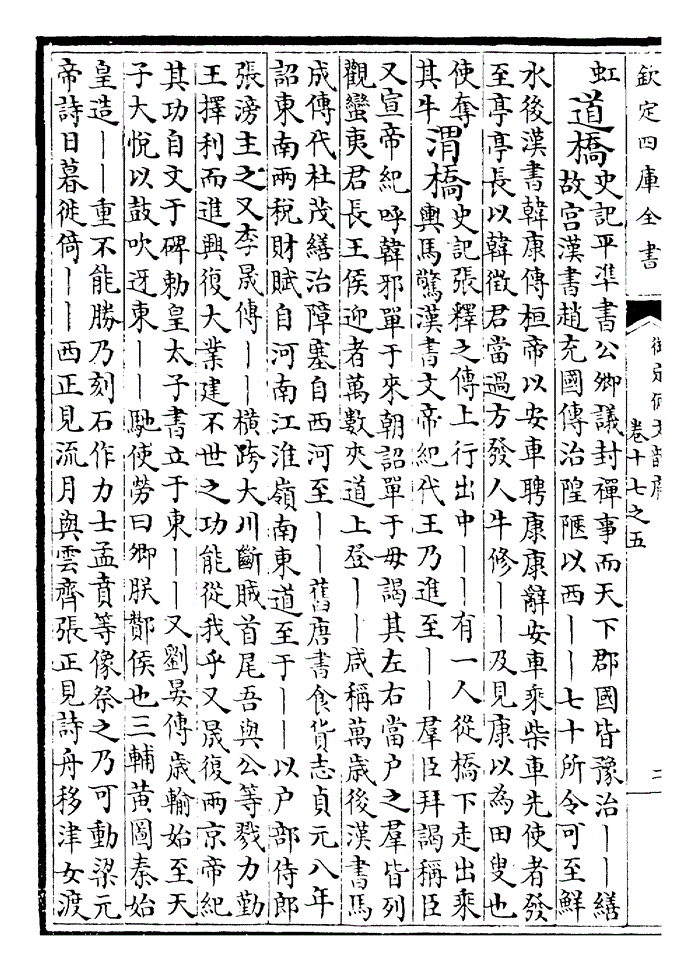 欽定四庫全書
御定佩文韻府
卷十七之五
二
虹
道橋
史記平準書公卿議封禪事而天下郡國皆豫治——繕
故宮漢書趙充國傳治隍陿以西——七十所令可至鮮
水後漢書韓康傳桓帝以安車聘康康辭安車乘柴車先使者發
至亭亭長以韓徵君當過方發人牛修——及見康以為田叟也
使奪
其牛
渭橋
史記張釋之傳上行出中——有一人從橋下走出乘
輿馬驚漢書文帝紀代王乃進至——羣臣拜謁稱臣
又宣帝紀呼韓邪單于來朝詔單于毋謁其左右當户之羣皆列
觀蠻夷君長王侯迎者萬數夾道上登——咸稱萬歲後漢書馬
成傳代杜茂繕治障塞自西河至——舊唐書食貨志貞元八年
詔東南兩稅財賦自河南江淮嶺南東道至于——以户部侍郎
張滂主之又李晟傳——橫跨大川斷賊首尾吾與公等戮力勤
王擇利而進興復大業建不世之功能從我乎又晟復兩京帝紀
其功自文于碑勅皇太子書立于東——又劉晏傳歲輸始至天
子大悅以鼓吹迓東——馳使勞曰卿朕鄼侯也三輔黃圖秦始
皇造——重不能勝乃刻石作力士孟賁等像祭之乃可動梁元
帝詩日暮徙倚——西正見流月與雲齊張正見詩舟移津女渡